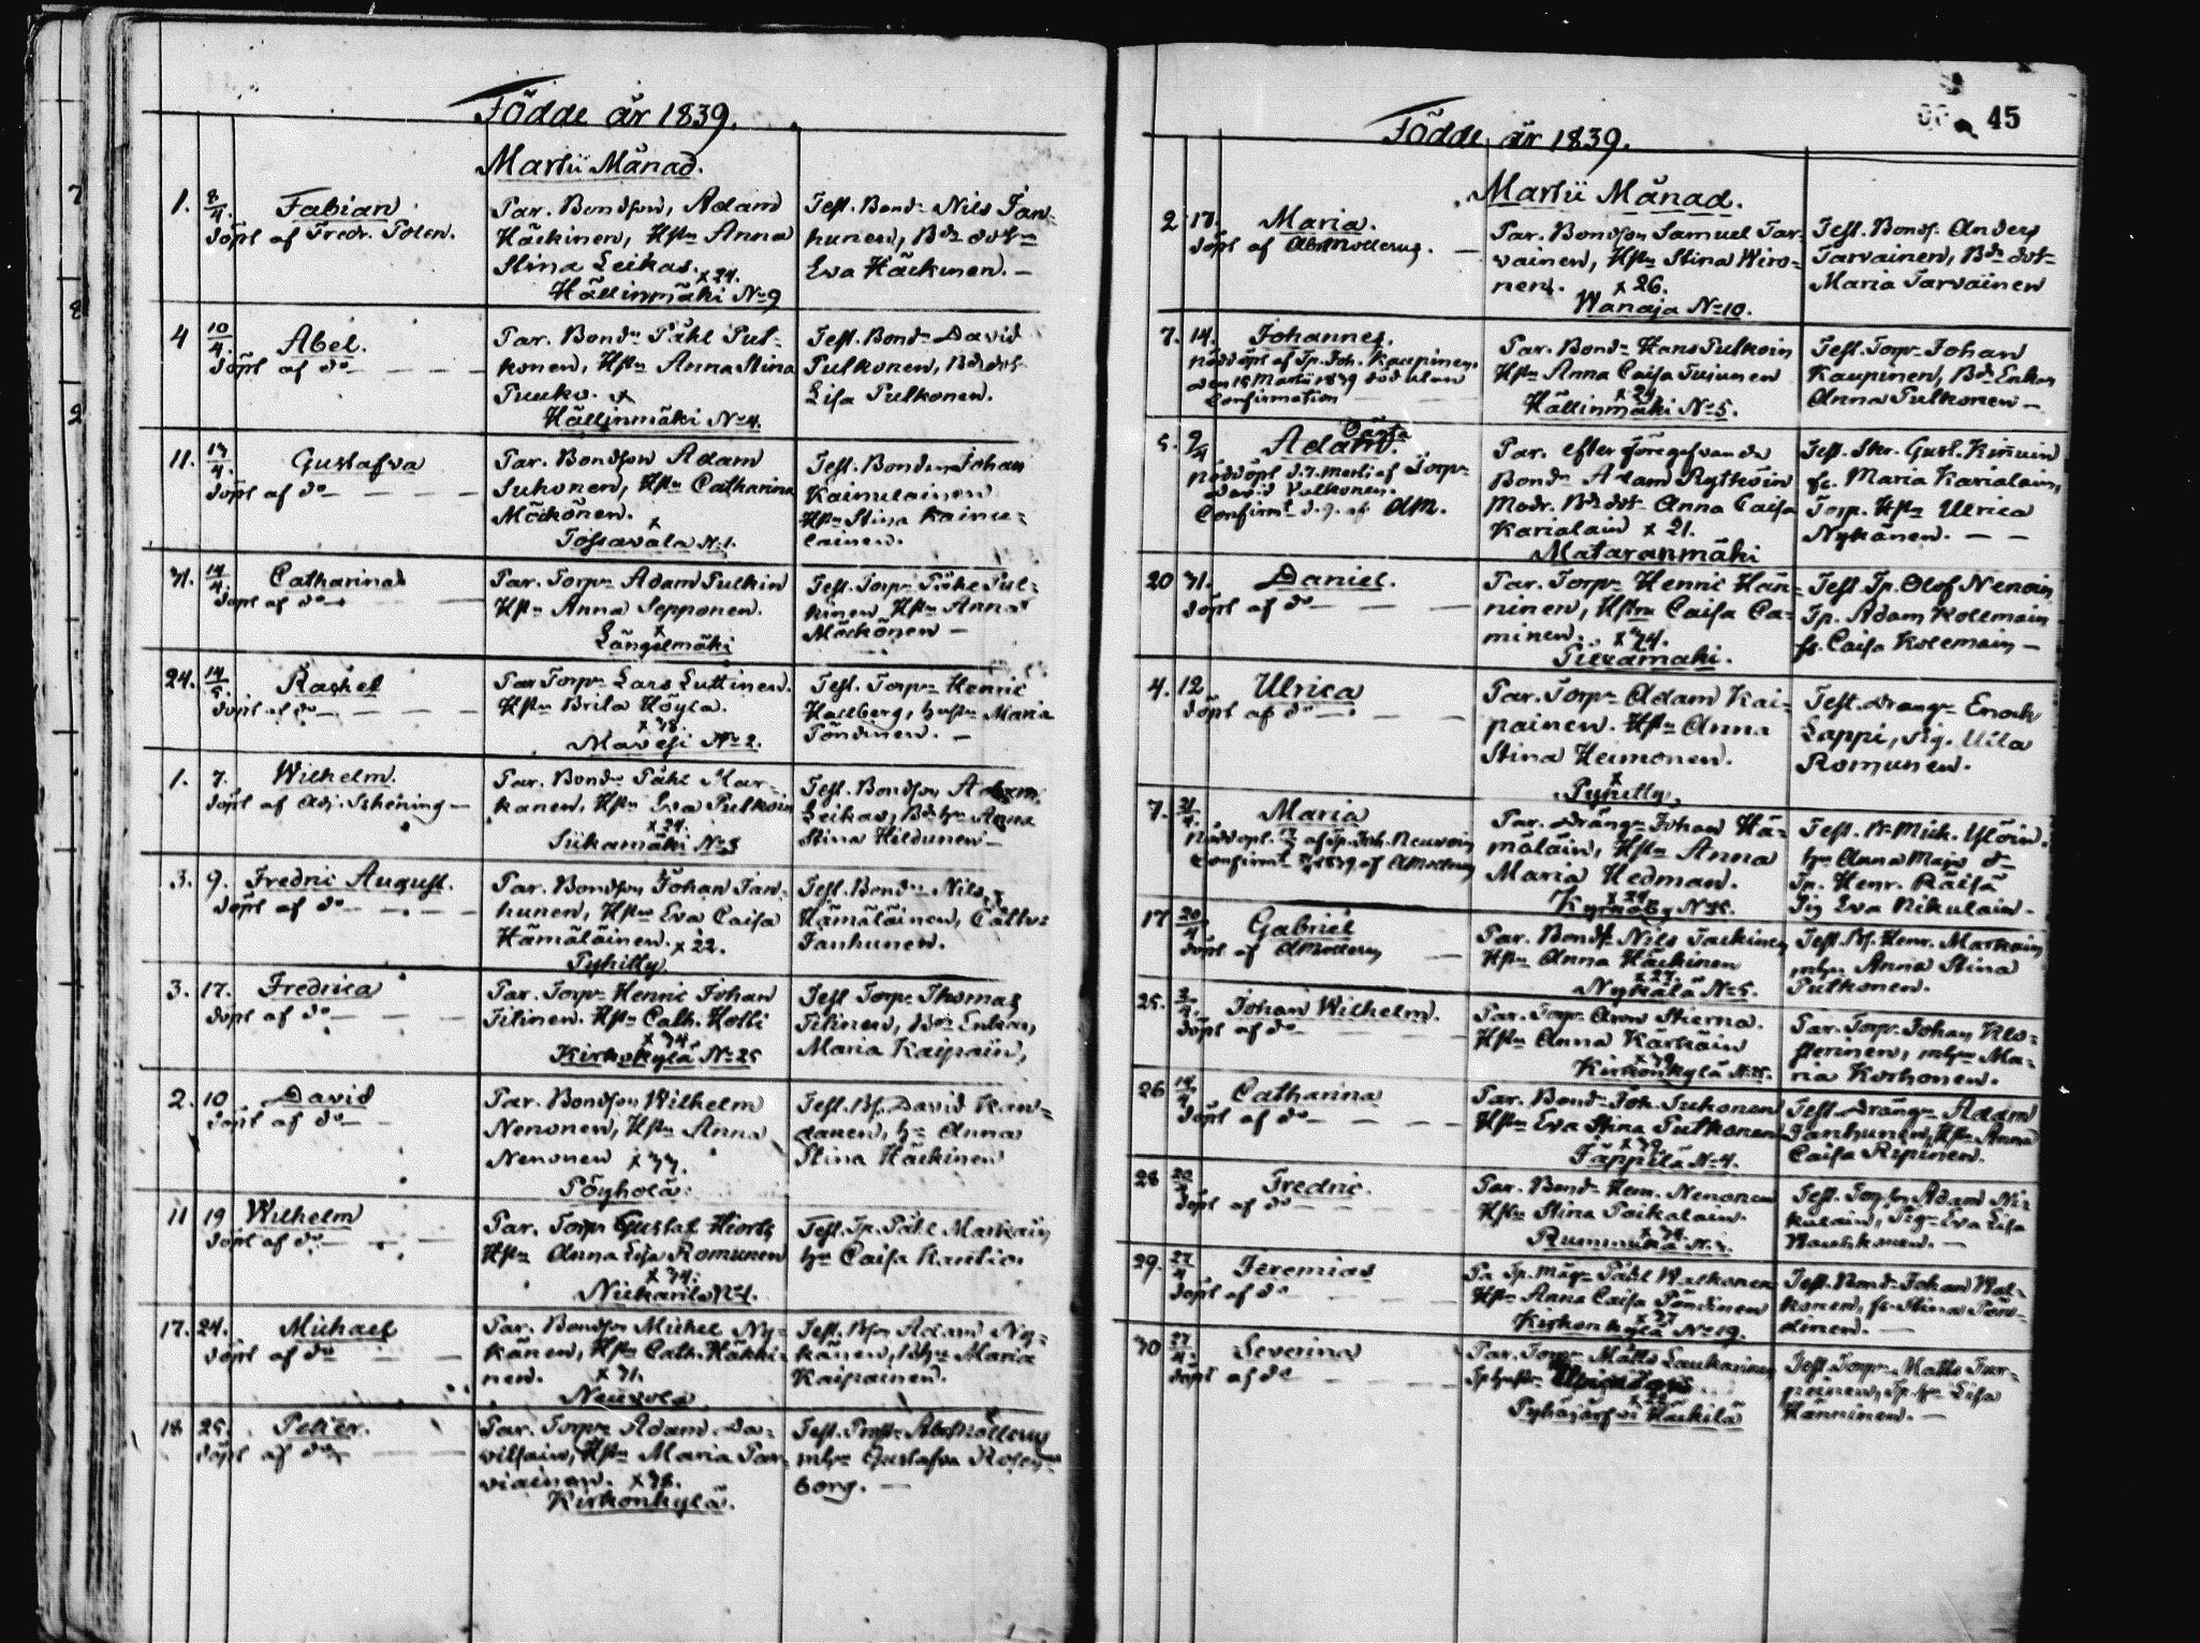 Födde år 1839.
Martii Månad.
1. 8/4. Fabian
döpt af Fredr. Polen.
Par. Bondson, Adam
Häckinen, Hstn Anna
Stina Leikas. x 24.
Hällinmäki No 9
Test. Bond. Nils Jan-
hunen, Bdr dotn
Eva Häckinen. —
4 10/4. Abel.
döpt af do — — —
Par. Bondn Påhl Pul-
konen, Hstn Anna Stina
Puuko. x
Hällinmäki No 4.
Test. Bondn David
Pulkonen, Bdr dotr
Lisa Pulkonen.
11. Gustafva
döpt af do — — — —
Par. Bondson Adam
Suhonen, Hstn Catharina
Möckönen. x
Tossavala N. 1.
Test. Bonden Johan
Kainulainen
Hstn Stina Kainu-
lainen.
31. 14/4. Catharina
döpt af do —
Par. Torpn Adam Pulkin
Hstn Anna Sepponen.
x
Längelmäki
Test. Torpn Påhl Pul-
kinen, Hstn Anna
Möckönen —
24. 14/5. Rachel
döpt af do — — — —
Par Torpn Lars Luttinen.
Hstn Brita Höyla.
x 38.
Mavesi No 2.
Test. Torpn Henric
Hallberg, hustn Maria
Pöndinen. —
1. 7. Wilhelm.
döpt af Adj. Schening —
Par. Bondn Påhl Mar-
kanen, Hstn Eva Pulkoin
x 24.
Siikamäki No 3
Test. Bondson Adam
Leikas, Bds hn Anna
Stina Hildunen —
3. 9. Fredric August.
döpt af do — — —
Par. Bondson Johan Jan-
hunen, Hstn Eva Caisa
Hämäläinen. x 22.
Pyhilly
Test. Bondn Nils
Hämäläinen, Cathr:
Janhunen.
3. 17. Fredrica
döpt af do — — —
Par. Torpn Henric Johan
Tilinen. Hstn Cath. Holli
x 34.
Kirkokylä No 25
Test Torpn Thomas
Tilinen, Bdr Enkan,
Maria Kaipain,
2. 10 David
döpt af do — —
Par. Bondson Wilhelm
Nenonen, Hstn Anna
Nenonen x 33.
Pöyhölä.
Test. Bs. David Kan-
danen, hn Anna
Stina Häckinen
11 19 Wilhelm
döpt af do — — —
Par. Torpn Gustaf Hiorts
Hstn Anna Lisa Romunen
x 34.
Niskarila N 1.
Test. Tp. Påhl Markain
hn Caisa Kantin
17. 24. Michael
döpt af do — — —
Par. Bondson Michel Ny-
känen, Hstn Cath. Häkki-
nen. x 31.
Neuvola
Test. Bson Adam Ny-
känen, Bdhn Maria
Kaipainen.
18 25. Petter.
döpt af do — —
Par. Torpn Adam Da-
vilsain, Hstn Maria Par-
viainen. x 38.
Kirkonkylä.
Test. Prost Abr. Mollerus
mhn Gustafva Rosen-
borg. —
45
Födde år 1839.
Martii Månad.
2 17. Maria.
döpt af Abr Mollerus. —
Par. Bondson Samuel Tar-
vainen, Hstn Stina Wiro-
nen. x 26.
Wanaja No 10.
Test. Bonds. Anders
Tarvainen, Bdn dotr
Maria Tarvainen
7. 14. Johannes.
nöddöpt af Tp. Joh. Kaupinen,
den 18 Martii 1839 död utan
Confirmation
Par. Bondn Hans Pulkoin
Hstn Anna Caisa Tujunen
x 24
Hällinmäki No 5.
Test. Torpn Johan
Kaupinen, Bdr Enkan
Anna Pulkonen —
5. 9/4 Adam. Oägta
nöddöpt d. 7. Martii af Torpn
David Valkonen.
Confirmt d. 9. af AM.
Par. efter föregifvande
Bondn Adam Rytköin
Modr. Bdr dotr Anna Caisa
Karialain x 21.
Mataranmäki
Test. Skr. Gust. Kinuin
fr. Maria Karialain,
Torp. Hstn Ulrica
Nykänen. — —
20 31. Daniel.
döpt af do — — —
Par. Torpn Henric Hän-
ninen, Hstn Caisa Ca-
minen. x 34.
Piexämäki.
Test Tp. Olof Nenoin
Tp. Adam Kolemain
fr. Caisa Kolemain —
4. 12 Ulrica
döpt af do — — —
Par. Torpn Adam Kai-
painen. Hstn Anna
Stina Heimonen.
x
Pyhitty,
Test. Drängn Enock
Lappi, Pig. Ulla
Romunen.
7. 21/4. Maria
nöddöpt. af Tp. Joh. Neuvoin
Confirmt 1839 af AMollerus
Par. Drängn Johan Hä-
mäläin, Hstn Anna
Maria Hedman.
x 24.
Kyrkoby No 25.
hn Anna Maja do
Tp. Henr. Räisä
Pig Eva Nikulain —
17 20/4 Gabriel
döpt af AMollerus —
Par. Bonds. Nils Jäckinen
Hstn Anna Häckinen
x 27.
Nykälä No 5.
Test. Bs. Henr. Markain
mhn Anna Stina
Pulkonen.
25. 3/4. Johan Wilhelm.
döpt af do — — —
Par. Torpr Aron Stierna.
Hstn Anna Kärkäin
x 39
Kirkonkylä N. 25.
Par. Torpr. Johan Klo-
sterinen, mhn Ma-
ria Korhonen.
26 Catharina
döpt af do — — —
Par. Bondn Joh. Suhonen
Hstn Eva Stina Pulkonen
x 39
Tappilä N. 4.
Test. Drängn Adam
Janhunen, Hstn Anna
Caisa Ripinen.
28 20/4 Fredric.
döpt af do — — —
Par. Bondn Henr. Nenonen
Hstn Stina Paikalain.
x 34.
Test. Torpson Adam Ni-
kulain, Pig. Eva Lisa
29. 27/4 Jeremias
döpt af do — — —
Pa Tp. Måg. Påhl Walkonen
Hstn Anna Caisa Pöndinen
x 27
Kirkonkylä No 19.
Test. Bond. Johan Wal-
konen, fr. Stina Pön-
dinen. —
30 27/4. Severina
döpt af do — — —
Par. Torpr Matts Laukarinen
Pyhäjärfvi Häckilä
Test Torpn Matts Tur-
peinen, Tp. hn Lisa
Hänninen. —